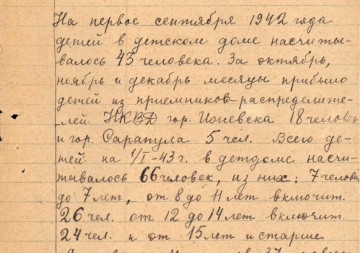 На первое сентября 1942 года
детей в детском доме насчиты-
валось 43 человека. За октябрь,
ноябрь и декабрь месяцы прибыло
детей из приемников-распределите-
лей НКВД гор. Ижевска 18 человек
и гор. Сарапула 5 чел. Всего де-
тей на 1/I-43 г. в детдоме насчи-
тывалось 66 человек, из них: 7 человек
до 7 лет, от 8 до 11 лет включит.
26 чел. от 12 до 14 лет включит.
24 чел. и от 15 лет и старше